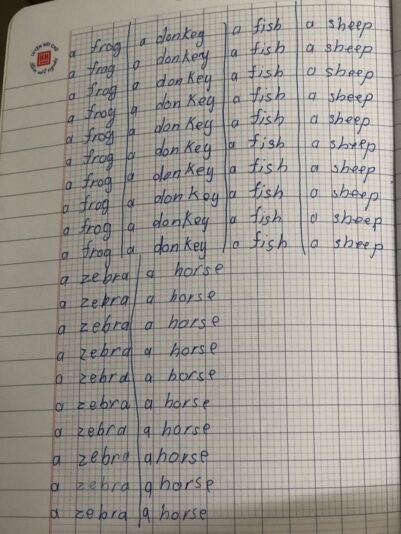 a frog a donkey a fish a sheep
a frog a donkey a fish a sheep
a frog a donkey a fish a sheep
a frog a donkey a fish a sheep
a frog a donkey a fish a sheep
a frog a donkey a fish a sheep
a frog a donkey a fish a sheep
a frog a donkey a fish a sheep
a frog a donkey a fish a sheep
a frog a donkey a fish a sheep
a zebra a horse
a zebra a horse
a zebra a horse
a zebra a horse
a zebra a horse
a zebra a horse
a zebra a horse
a zebra a horse
a zebra a horse
a zebra a horse